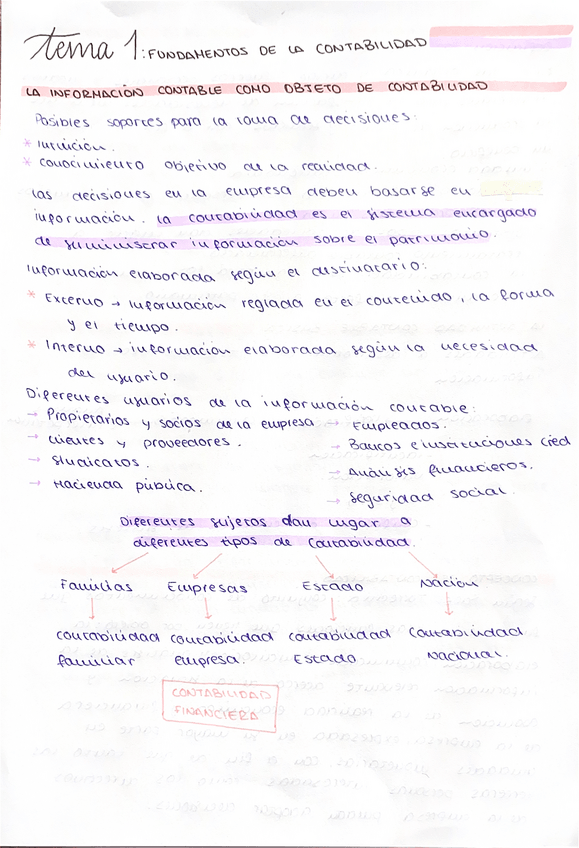 tema 1: FUNDAMENTOS DE LA CONTABILIDAD
LA INFORMACIÓN CONTABLE COMO OBJETO DE CONTABILIDAD
Posibles soportes para la toma de decisiones:
* Intuición.
* Conocimiento objetivo de la realidad.
Las decisiones en la empresa deben basarse en
información. La contabilidad es el sistema encargado
de suministrar información sobre el patrimonio.
Información elaborada según el destinatario:
* Externo → Información reglada en el contenido, la forma
y el tiempo.
* Interno → información elaborada según la necesidad
del usuario.
Diferentes usuarios de la información contable:
→ Propietarios y socios de la empresa → Empleados.
→ Clientes y proveedores. → Bancos e instituciones cred
→ Sindicatos. → Análisis financieros.
→ Hacienda pública. → Seguridad social.
Diferentes sujetos dan lugar a
diferentes tipos de Contabilidad.
Familias Empresas Estado Nación
contabilidad contabilidad contabilidad Contabilidad
familiar empresa. Estado Nacional.
CONTABILIDAD
FINANCIERA